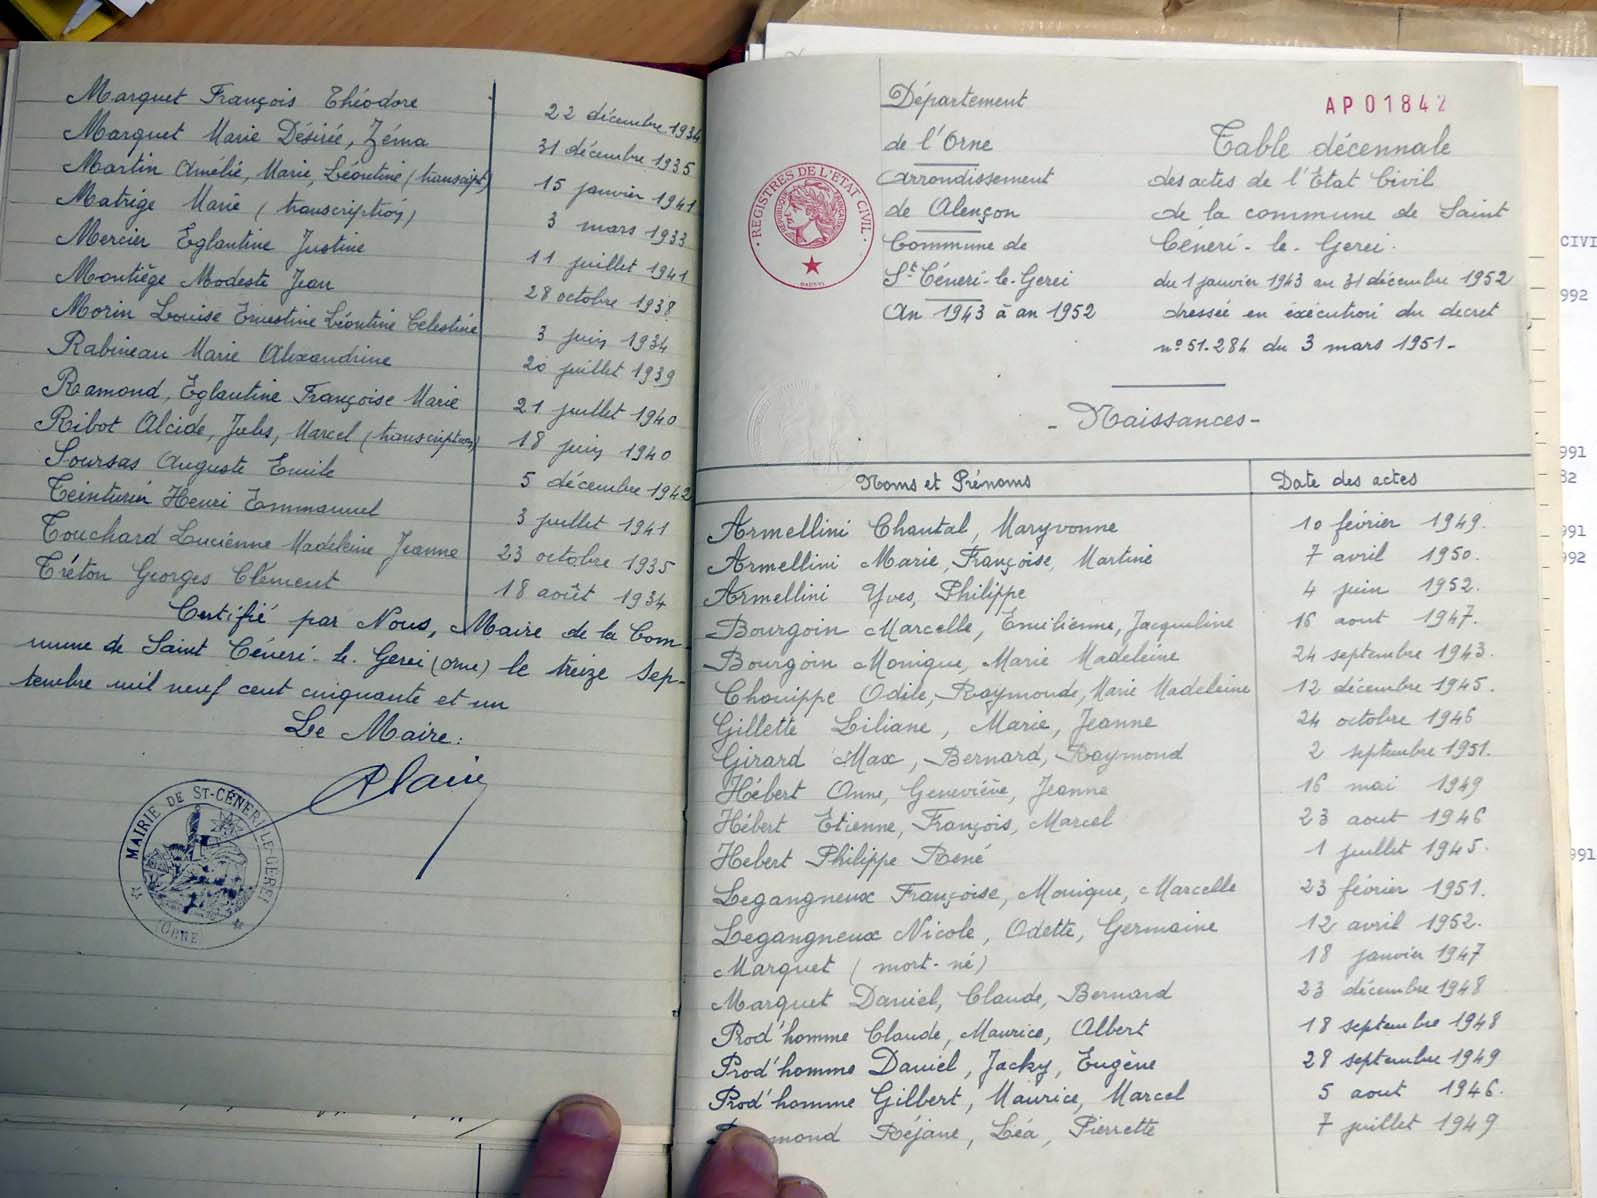 Marquet François Théodore 22 décembre 1934
Marquet Marie Désirée, Zéma 31 décembre 1935
Martin Amélie, Marie, Léontine (transcript) 15 janvier 1941
Matrige Marie (transcription) 3 mars 1933
Mercier Eglantine Justine 11 juillet 1941
Montiège Modeste Jean 28 octobre 1938
Morin Louise Ernestine Léontine Celestine 3 juin 1934
Rabineau Marie Alexandrine 20 juillet 1939
Ramond, Eglantine Françoise Marie 21 juillet 1940
Ribot Alcide, Jules, Marcel (transcription) 18 juin 1940
Soursas Auguste Emile 5 décembre 1942
Teinturier Henri Emmanuel 3 juillet 1941
Touchard Lucienne Madeleine Jeanne 23 octobre 1935
Tréton Georges Clément 18 août 1934
Certifié par Nous, Maire de la Com-
mune de Saint Céneri-le-Gerei (orne) le treize sep-
tembre mil neuf cent cinquante et un
Le Maire:
MAIRIE DE ST-CÉNERI LE GEREI
(ORNE)
AP01842
Département
de l'Orne
Arrondissement
de Alençon
Commune de
St Céneri-le-Gerei
An 1943 à an 1952
REGISTRES DE L'ETAT CIVIL
Table décennale
des actes de l'Etat Civil
de la commune de Saint
Céneri-le-Gerei.
du 1 janvier 1943 au 31 décembre 1952
dressée en exécution du decret
n° 51-284 du 3 mars 1951-
- Naissances -
Noms et Prénoms Date des actes
Armellini Chantal, Maryvonne 10 février 1949.
Armellini Marie, Françoise, Martine 7 avril 1950.
Armellini Yves, Philippe 4 juin 1952.
Bourgoin Marcelle, Emilienne, Jacqueline 16 aout 1947.
Bourgoin Monique, Marie Madeleine 24 septembre 1943.
Chouippe Odile, Raymonde, Marie Madeleine 12 décembre 1945.
Gillette Liliane, Marie, Jeanne 24 octobre 1946
Girard Max, Bernard, Raymond 2 septembre 1951.
Hébert Anne, Geneviève, Jeanne 16 mai 1949
Hébert Etienne, François, Marcel 23 aout 1946
Hebert Philippe René 1 juillet 1945.
Legangneux Françoise, Monique, Marcelle 23 février 1951.
Legangneux Nicole, Odette, Germaine 12 avril 1952.
Marquet (mort-né) 18 janvier 1947
Marquet Daniel, Claude, Bernard 23 décembre 1948
Prod'homme Claude, Maurice, Albert 18 septembre 1948
Prod'homme Daniel, Jacky, Eugène 28 septembre 1949
Prod'homme Gilbert, Maurice, Marcel 5 aout 1946.
mond Rejane, Léa, Pierrette 7 juillet 1949
CIVI
992
991
82
991
992
991